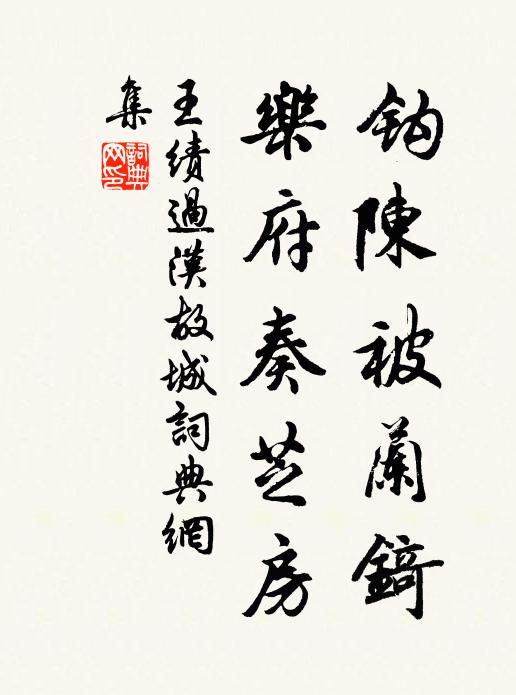 鈎陳被蘭錡
樂府奏芝房
王績過漢故城詞典網
集
詞典網印